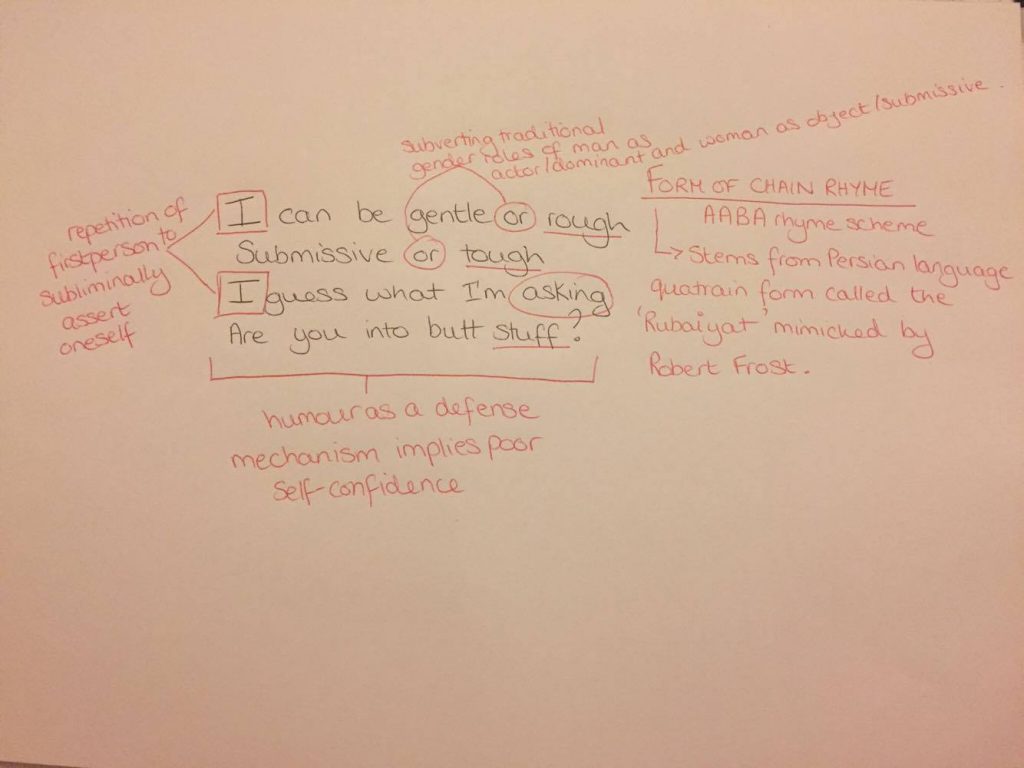 subverting traditional
gender roles of man as
actor/dominant and woman as object/submissive.
repetition of
firstperson to
subliminally
assert
oneself
I can be gentle or rough
Submissive or tough
I guess what I'm asking
Are you into butt stuff?
FORM OF CHAIN RHYME
AABA rhyme scheme
Stems from Persian language
quatrain form called the
'Rubaiyat' mimicked by
Robert Frost.
humour as a defense
mechanism implies poor
self-confidence